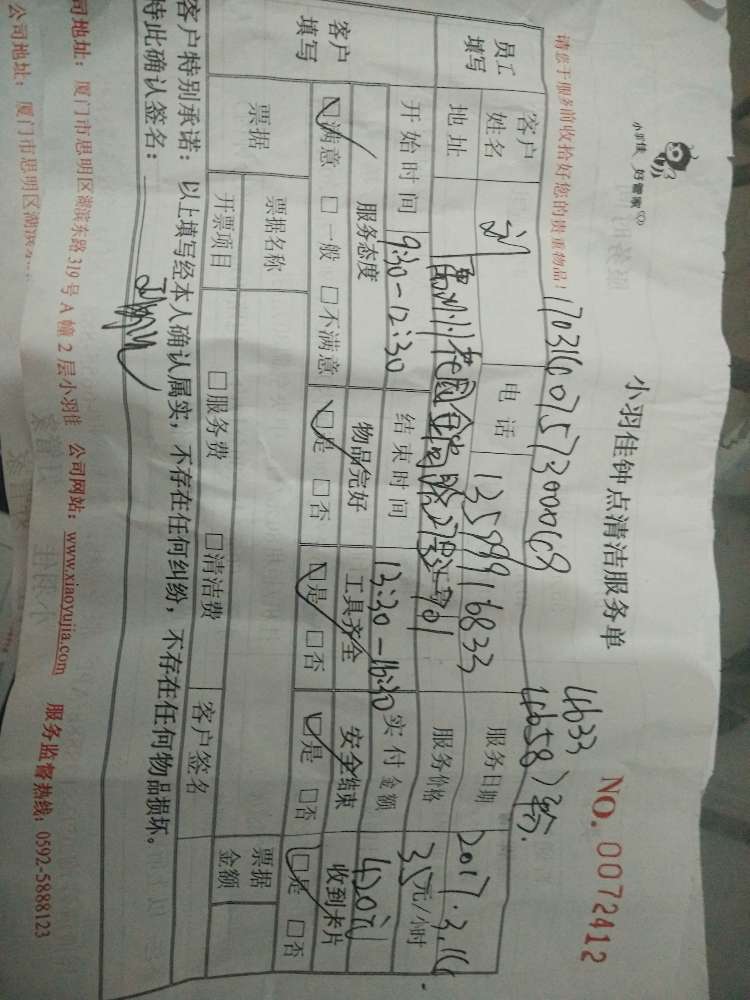 小羽佳 好管家
小羽佳钟点清洁服务单
NO. 0072412
4633
4658
请您于服务前收拾好您的贵重物品!
1703160757300068
员工填写 客户姓名 刘 电话 13599916833 服务日期 2017.3.16.
地址 花园 服务价格 35元/小时
开始时间 9:30-12:30 结束时间 13:30-16:30 实付金额 420元
客户填写 服务态度 物品完好 工具齐全 安全结束 收到卡片
☑满意 □一般 □不满意 ☑是 □否 ☑是 □否 ☑是 □否 ☑是 □否
票据 票据名称 □服务费 □清洁费 客户签名 票据金额
开票项目
客户特别承诺:以上填写经本人确认属实,不存在任何纠纷,不存在任何物品损坏。
特此确认签名:
司地址:厦门市思明区湖滨东路319号A幢2层小羽佳 公司网站:www.xiaoyujia.com 服务监督热线:0592-5888123
公司地址:厦门市思明区湖滨